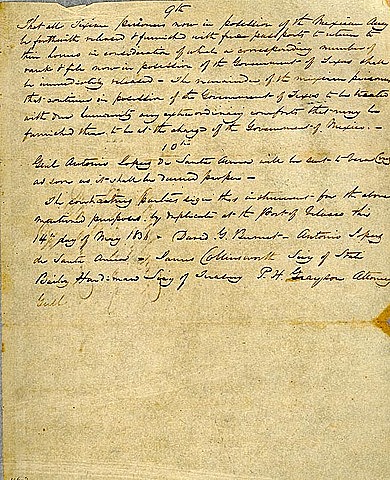 9th
That all Texian prisoners now in possession of the Mexican Army
be forthwith released & furnished with free passports to return to
their homes in consideration of which a corresponding number of
rank & file now in possession of the Government of Texas shall
be immediately released - The remainder of the mexican prisoners
that continue in possession of the Government of Texas to be treated
with due humanity any extraordinary comforts that may be
furnished them to be at the charge of the Government of Mexico. -
10th
Genl Antonio Lopez de Santa Anna will be sent to Vera Cruz
as soon as it shall be deemed proper -
The contracting parties sign this instrument for the above
mentioned purposes, by duplicate at the Port of Velasco this
14th day of May 1836, - David G Burnet - Antonio Lopez
de Santa Anna - James Collinsworth Secy of State
Bailey Hardiman Secy of Treasury P. H. Grayson Attorney
Genl